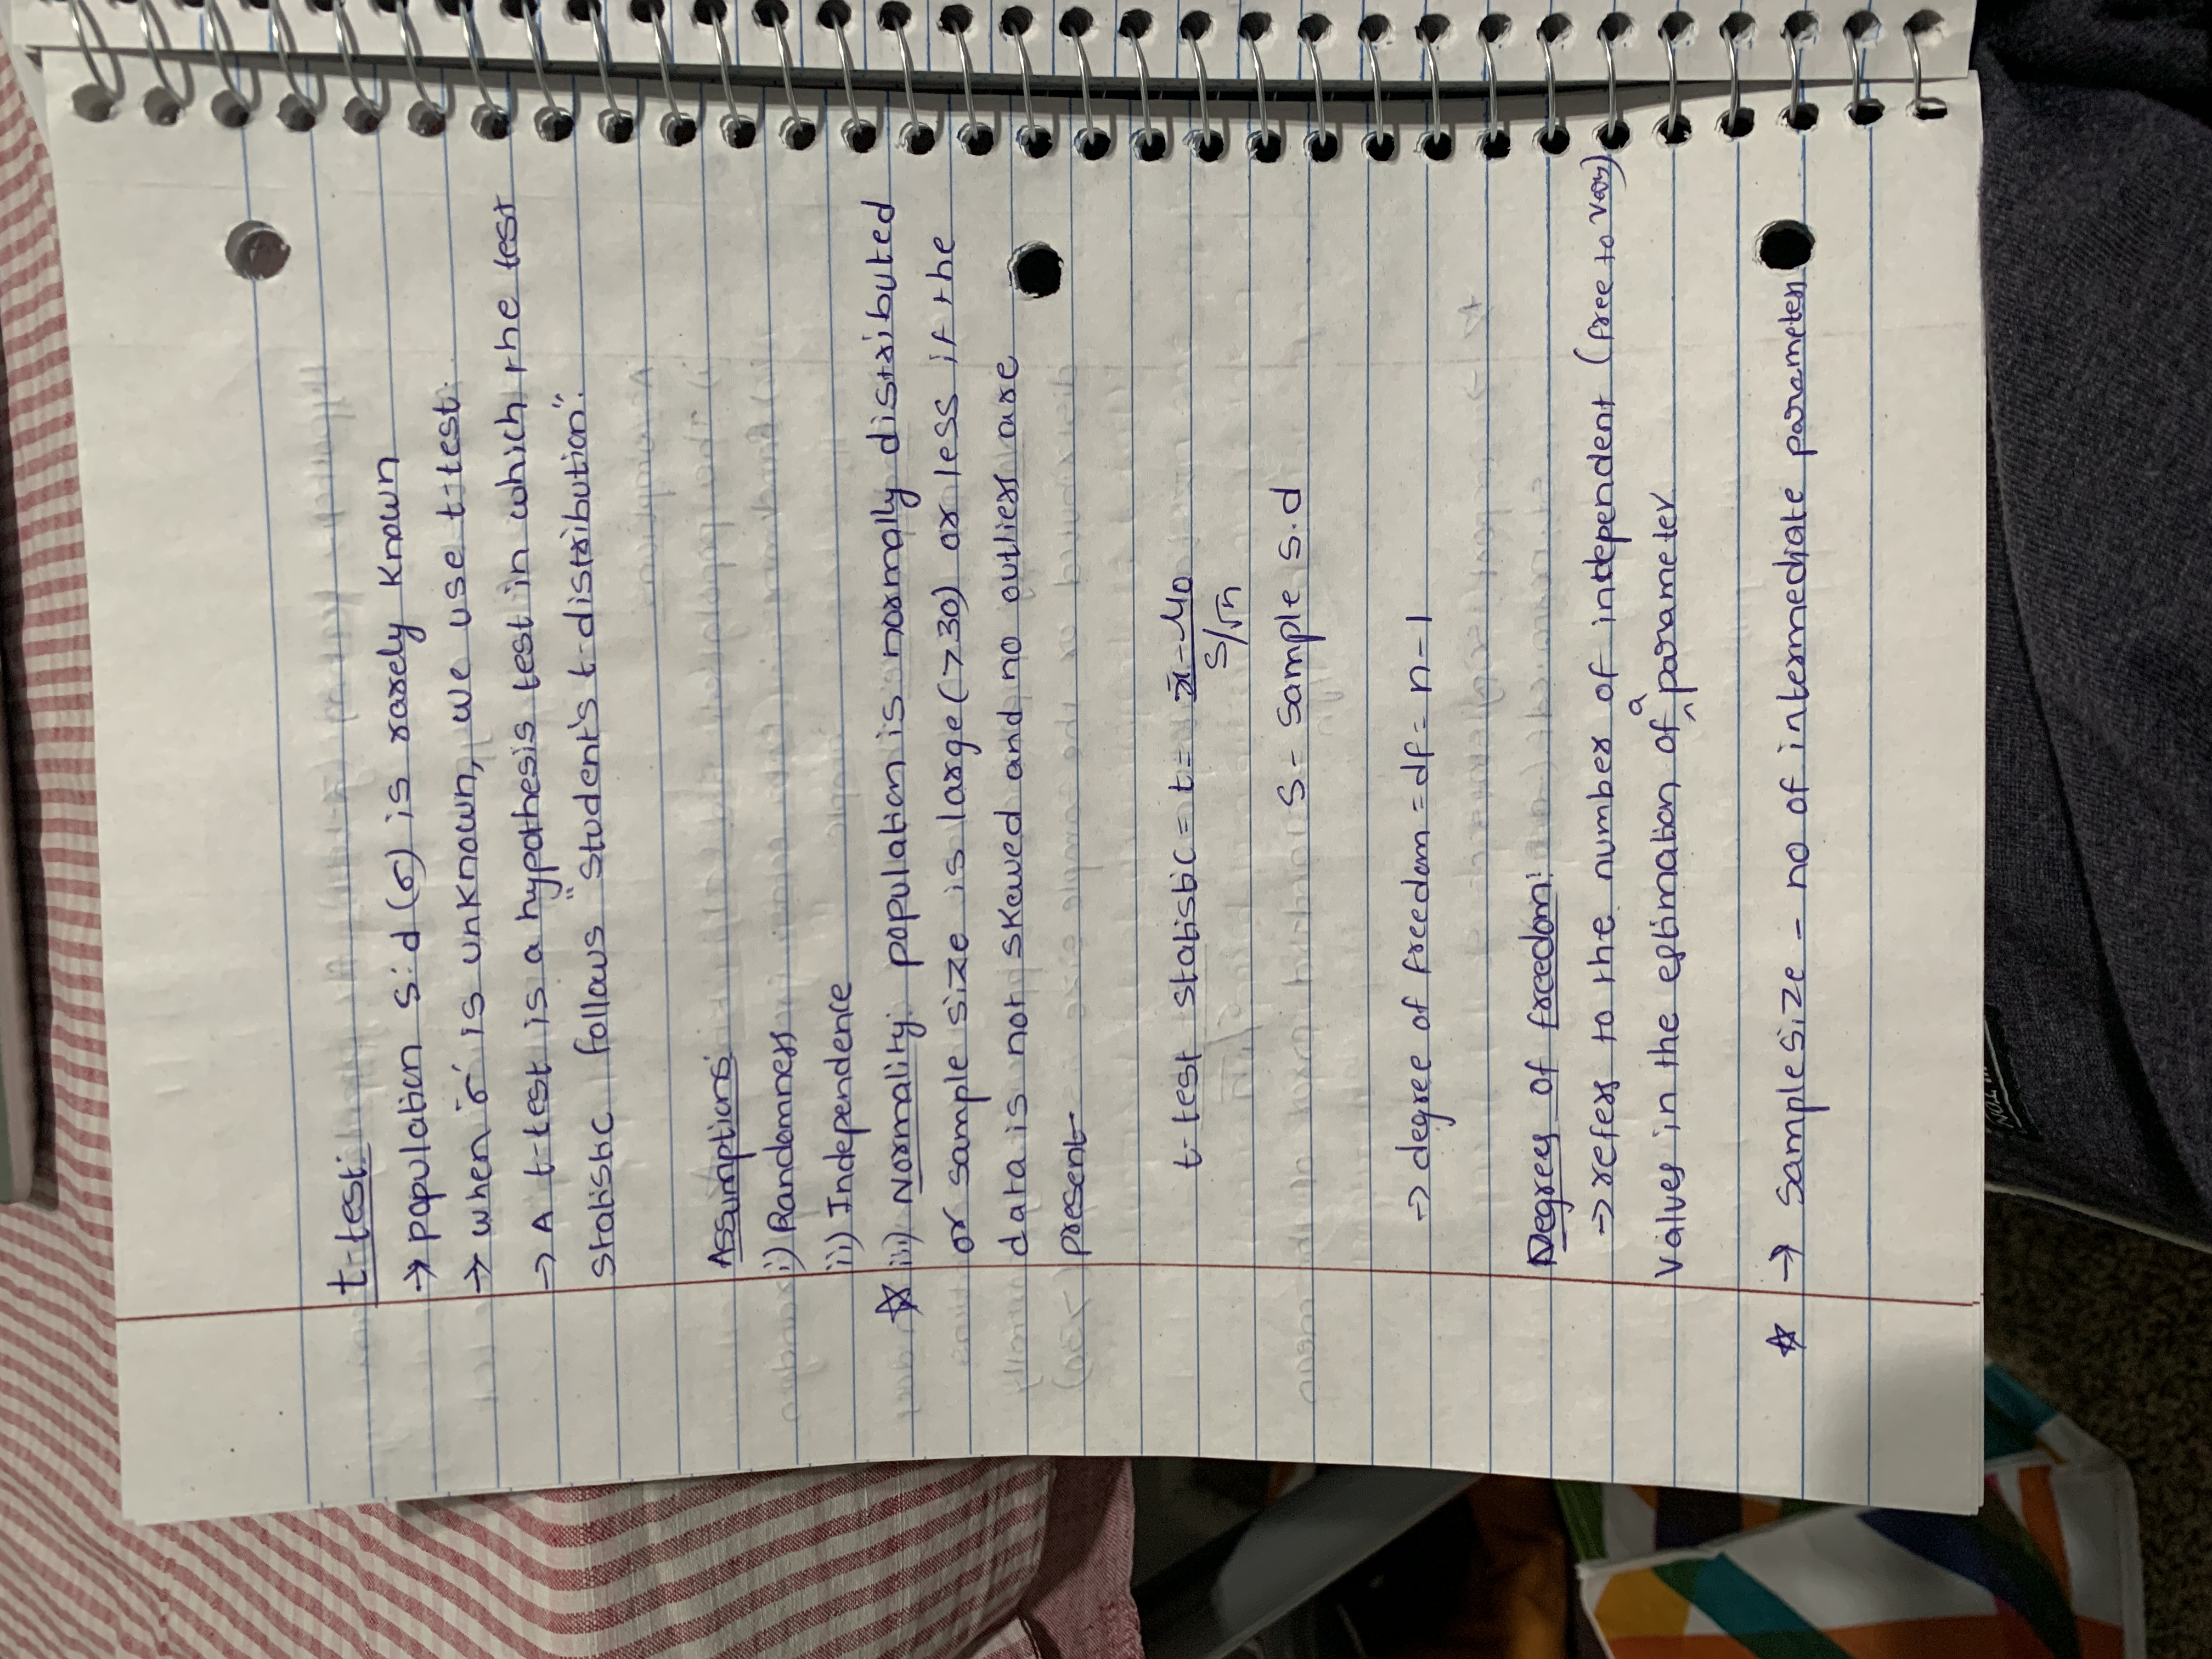 t-test:
→ population s.d (σ) is rarely known
→ when 'σ' is unknown, we use t-test.
→ A t-test is a hypothesis test in which the test
statistic follows "Student's t-distribution".
Assumptions:
i) Randomness
ii) Independence
☆ iii) Normality: population is normally distributed
or sample size is large (>30) or less if the
data is not skewed and no outliers are
present
t-test statistic = t = x̄ - μ0
S/√n
S - Sample s.d
→ degree of freedom = df = n-1
Degrees of freedom:
→ refers to the number of independent (free to vary)
values in the estimation of a parameter
☆ → Sample size - no of intermediate parameters